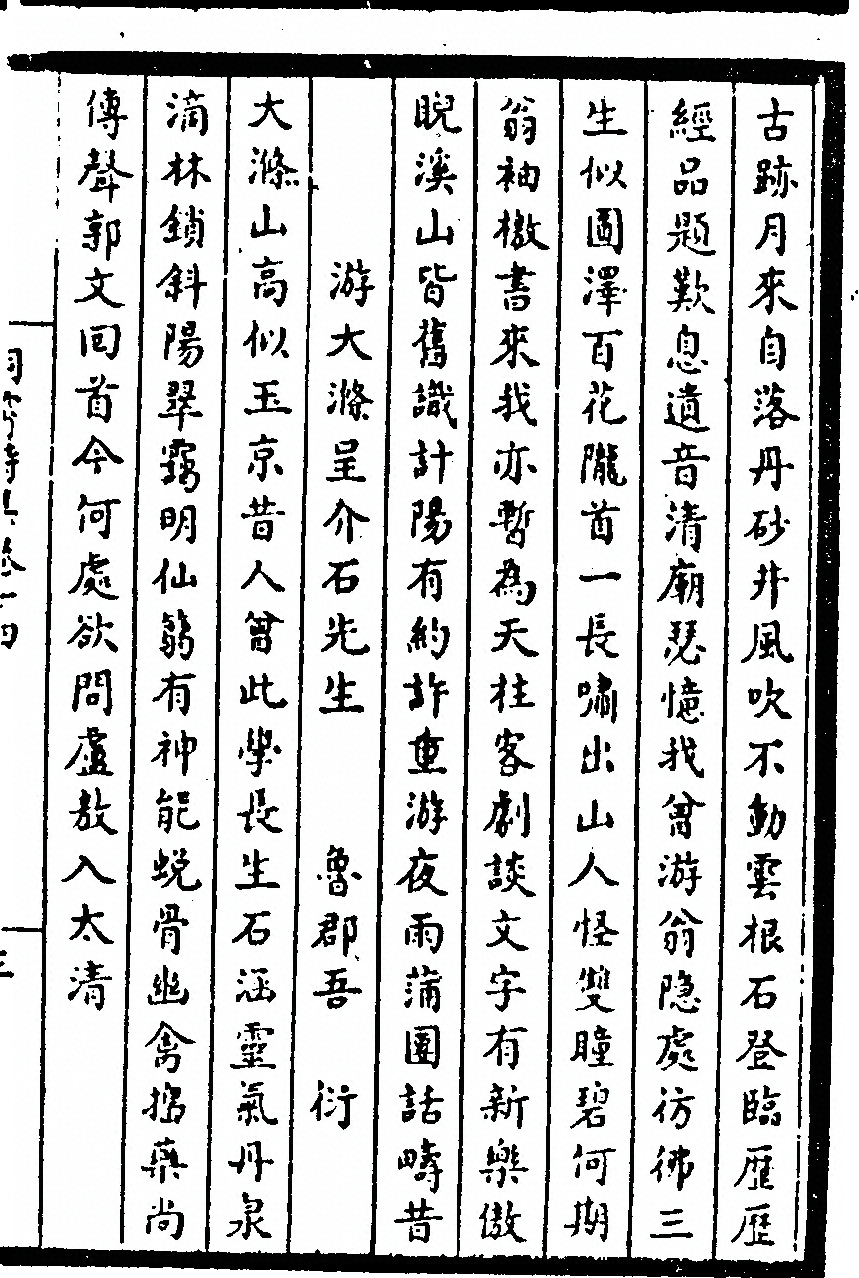 古跡月來自落丹砂井風吹不動雲根石登臨歷歷
經品題歎息遺音清廟瑟憶我曾游翁隐處彷彿三
生似圓澤百花隴首一長嘯出山人怪雙瞳碧何期
翁袖檄書來我亦暫為天柱客劇談文字有新樂傲
睨溪山皆舊識計陽有約許重游夜雨蒲團話疇昔
游大滌呈介石先生　魯郡吾　衍
大滌山高似玉京昔人曾此學長生石涵靈氣丹泉
滴林鎖斜陽翠竊明仙翁有神能蛻骨幽禽搗藥尚
傳聲郭文回首今何處欲問盧敖入太清
洞霄詩集卷十四